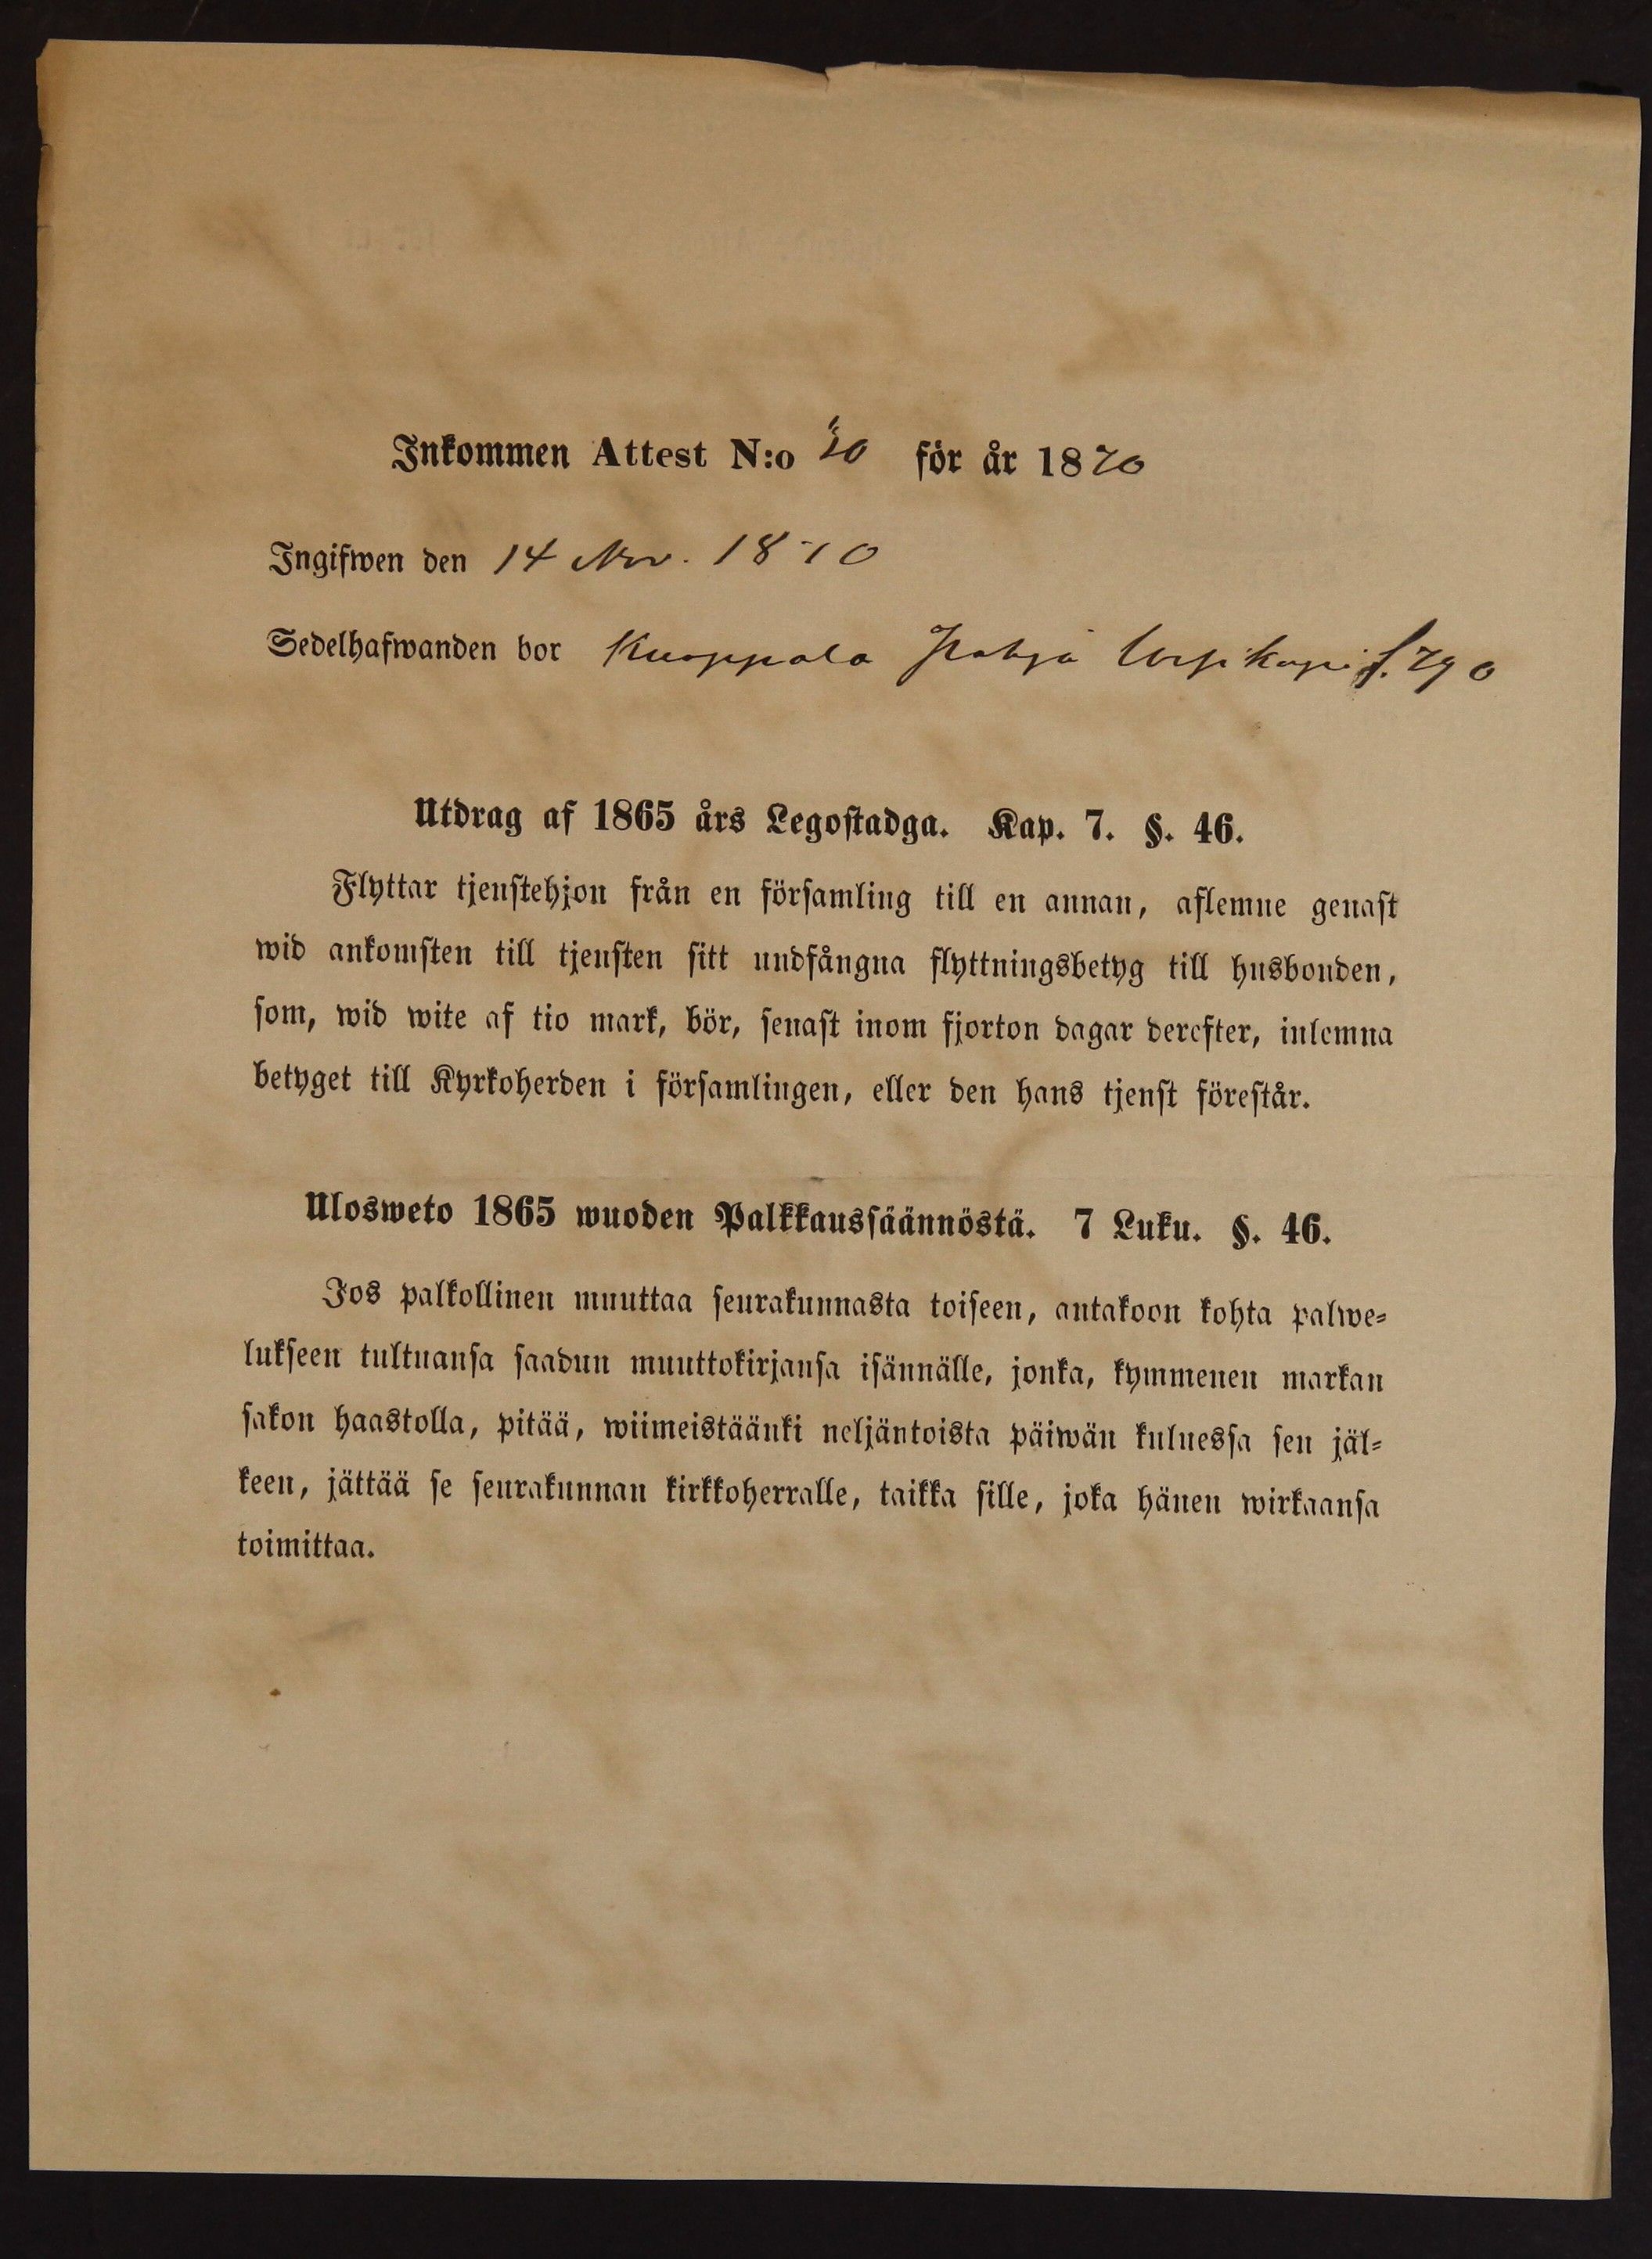 Inkommen Attest N:o för år 1870
Ingifwen den 14 Nov. 1870
Sedelhafwanden bor Kuoppala f. 790
Utdrag af 1865 års Legostadga. Kap. 7. §. 46.
Flyttar tjenstehjon från en församling till en annan, aflemne genast
wid ankomsten till tjensten sitt undfångna flyttningsbetyg till husbonden,
som, wid wite af tio mark, bör, senast inom fjorton dagar derefter, inlemna
betyget till Kyrkoherden i församlingen, eller den hans tjenst förestår.
Ulosweto 1865 wuoden Palkkaussäännöstä. 7 Luku. §. 46.
Jos palkollinen muuttaa seurakunnasta toiseen, antakoon kohta palwe=
lukseen tultuansa saadun muuttokirjansa isännälle, jonka, kymmenen markan
sakon haastolla, pitää, wiimeistäänki neljäntoista päiwän kuluessa sen jäl=
keen, jättää se seurakunnan kirkkoherralle, taikka sille, joka hänen wirkaansa
toimittaa.